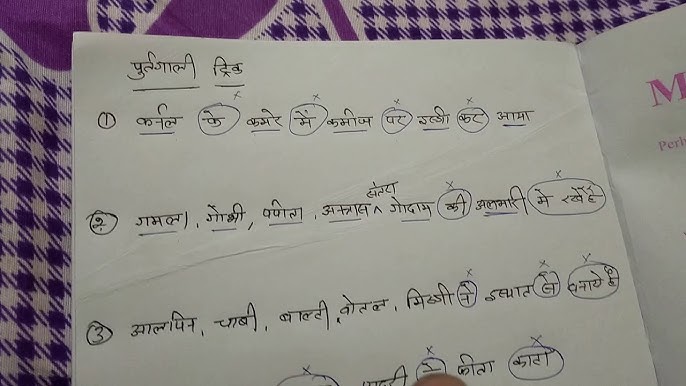 पुर्तगाली ट्रिक
① कर्नल के कमरे में कमीज पर इस्त्री कर आया
संतरा
② गमला, गोभी, पपीता, अन्नास ^ गोदाम की अलमारी में रखे हैं
③ आलपिन, चाबी, बाल्टी, बोतल, मिस्त्री ने इस्पात से बनाये है
फीता काटा
M
Perh